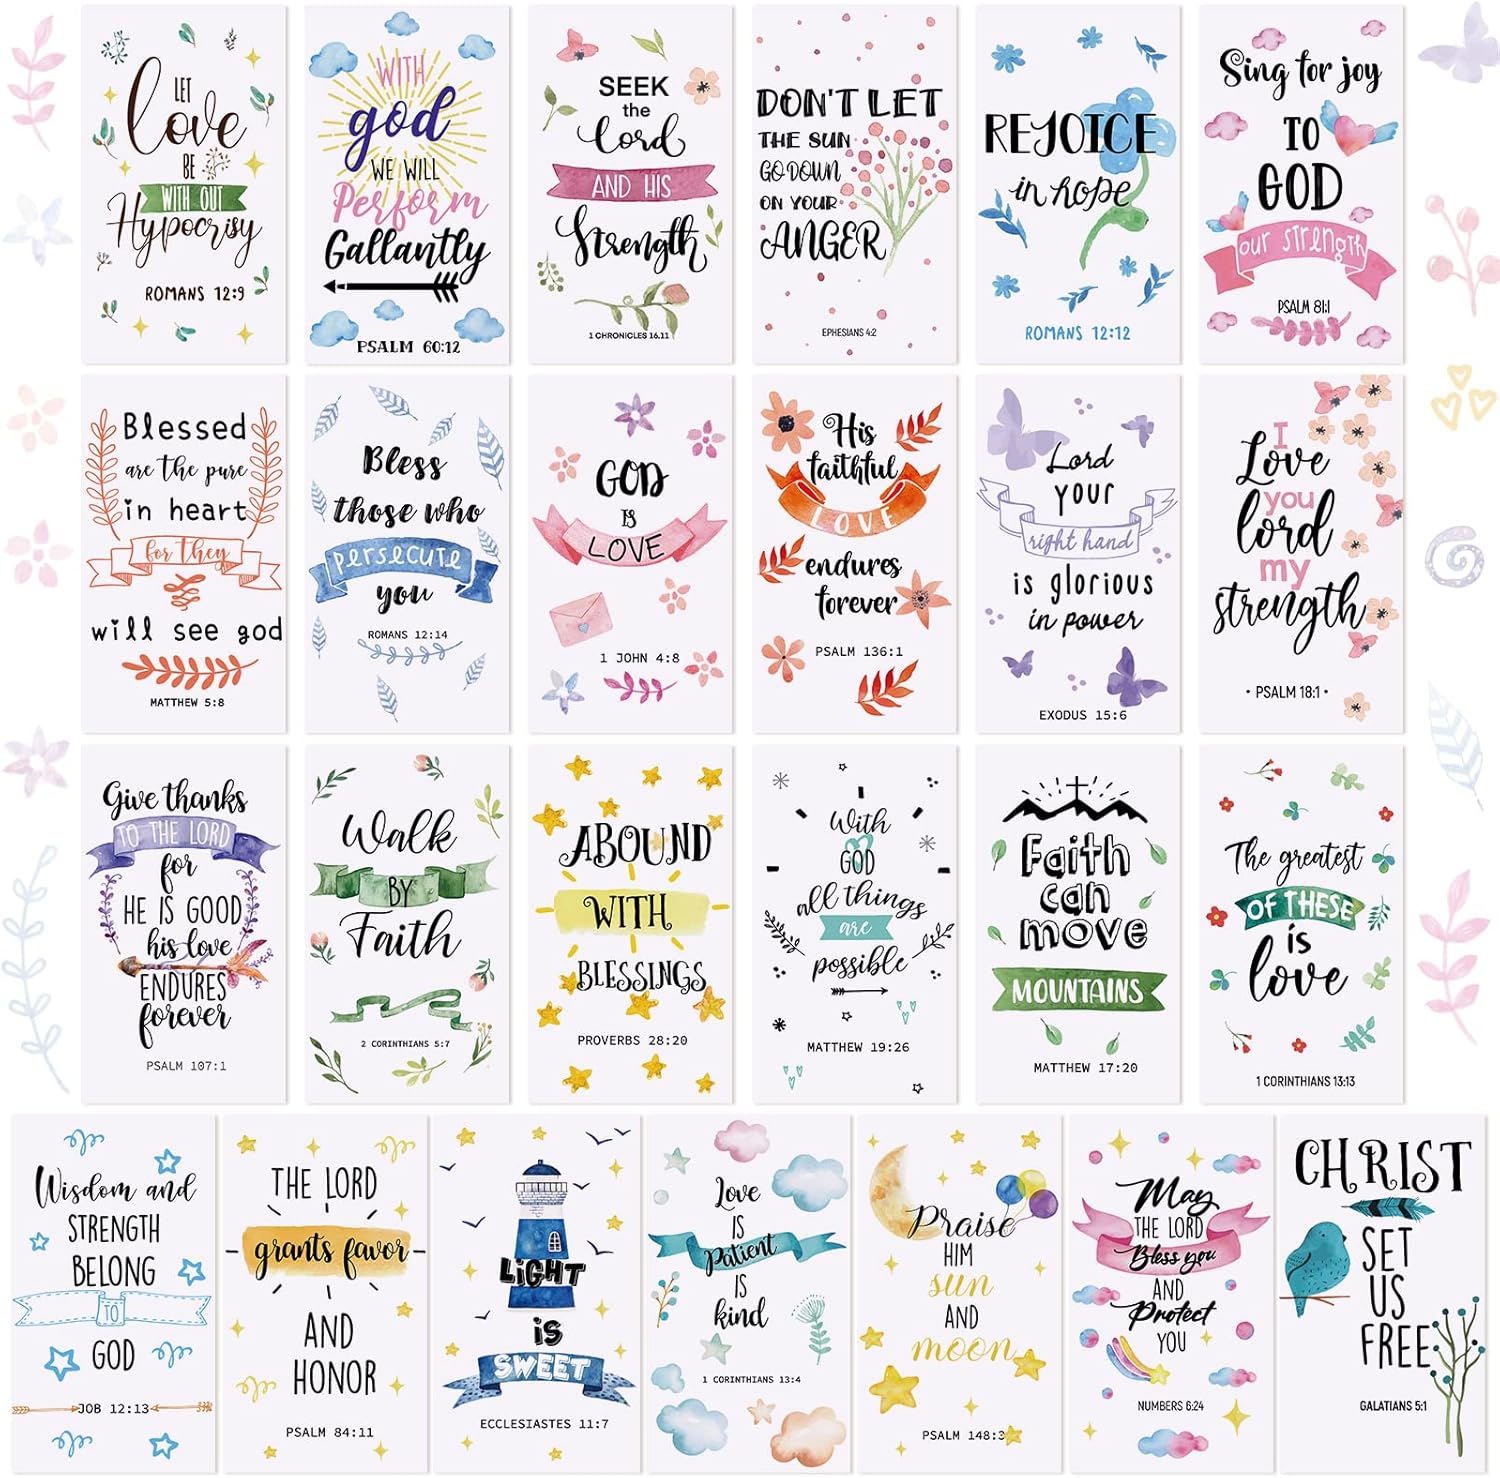 LET
Love
BE
WITH OUT
Hypocrisy
ROMANS 12:9
WITH
god
WE WILL
Perform
Gallantly
PSALM 60:12
SEEK
the
Lord
AND HIS
Strength
1 CHRONICLES 16.11
DON'T LET
THE SUN
GO DOWN
ON YOUR
ANGER
EPHESIANS 4:2
REJOICE
in hope
ROMANS 12:12
Sing for joy
TO
GOD
our strength
PSALM 81:1
Blessed
are the pure
in heart
for they
will see god
MATTHEW 5:8
Bless
those who
persecute
you
ROMANS 12:14
GOD
IS
LOVE
1 JOHN 4:8
His
faithful
LOVE
endures
forever
PSALM 136:1
Lord
your
right hand
is glorious
in power
EXODUS 15:6
I
Love
you
lord
my
strength
• PSALM 18:1 •
Give thanks
TO THE LORD
for
HE IS GOOD
his love
ENDURES
forever
PSALM 107:1
Walk
BY
Faith
2 CORINTHIANS 5:7
ABOUND
WITH
BLESSINGS
PROVERBS 28:20
With
GOD
all things
are
possible
MATTHEW 19:26
Faith
can
move
MOUNTAINS
MATTHEW 17:20
The greatest
OF THESE
is
love
1 CORINTHIANS 13:13
Wisdom and
STRENGTH
BELONG
TO
GOD
JOB 12:13
THE LORD
grants favor
AND
HONOR
PSALM 84:11
LIGHT
is
SWEET
ECCLESIASTES 11:7
Love
IS
Patient
IS
kind
1 CORINTHIANS 13:4
Praise
HIM
sun
AND
moon
PSALM 148:3
May
THE LORD
Bless you
AND
Protect
YOU
NUMBERS 6:24
CHRIST
SET
US
FREE
GALATIANS 5:1